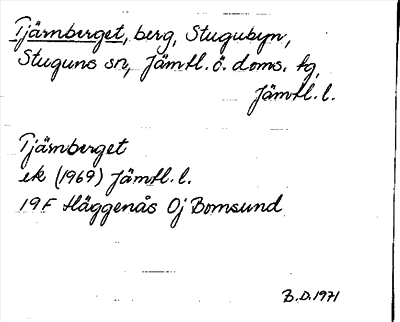 Tjärnberget, berg, Stugubyn,
Stuguns sn, Jämtl. ö. doms. tg,
Jämtl. l.
Tjärnberget
ek (1969) Jämtl. l.
19F Häggenås Oj Bomsund
B.D. 1971